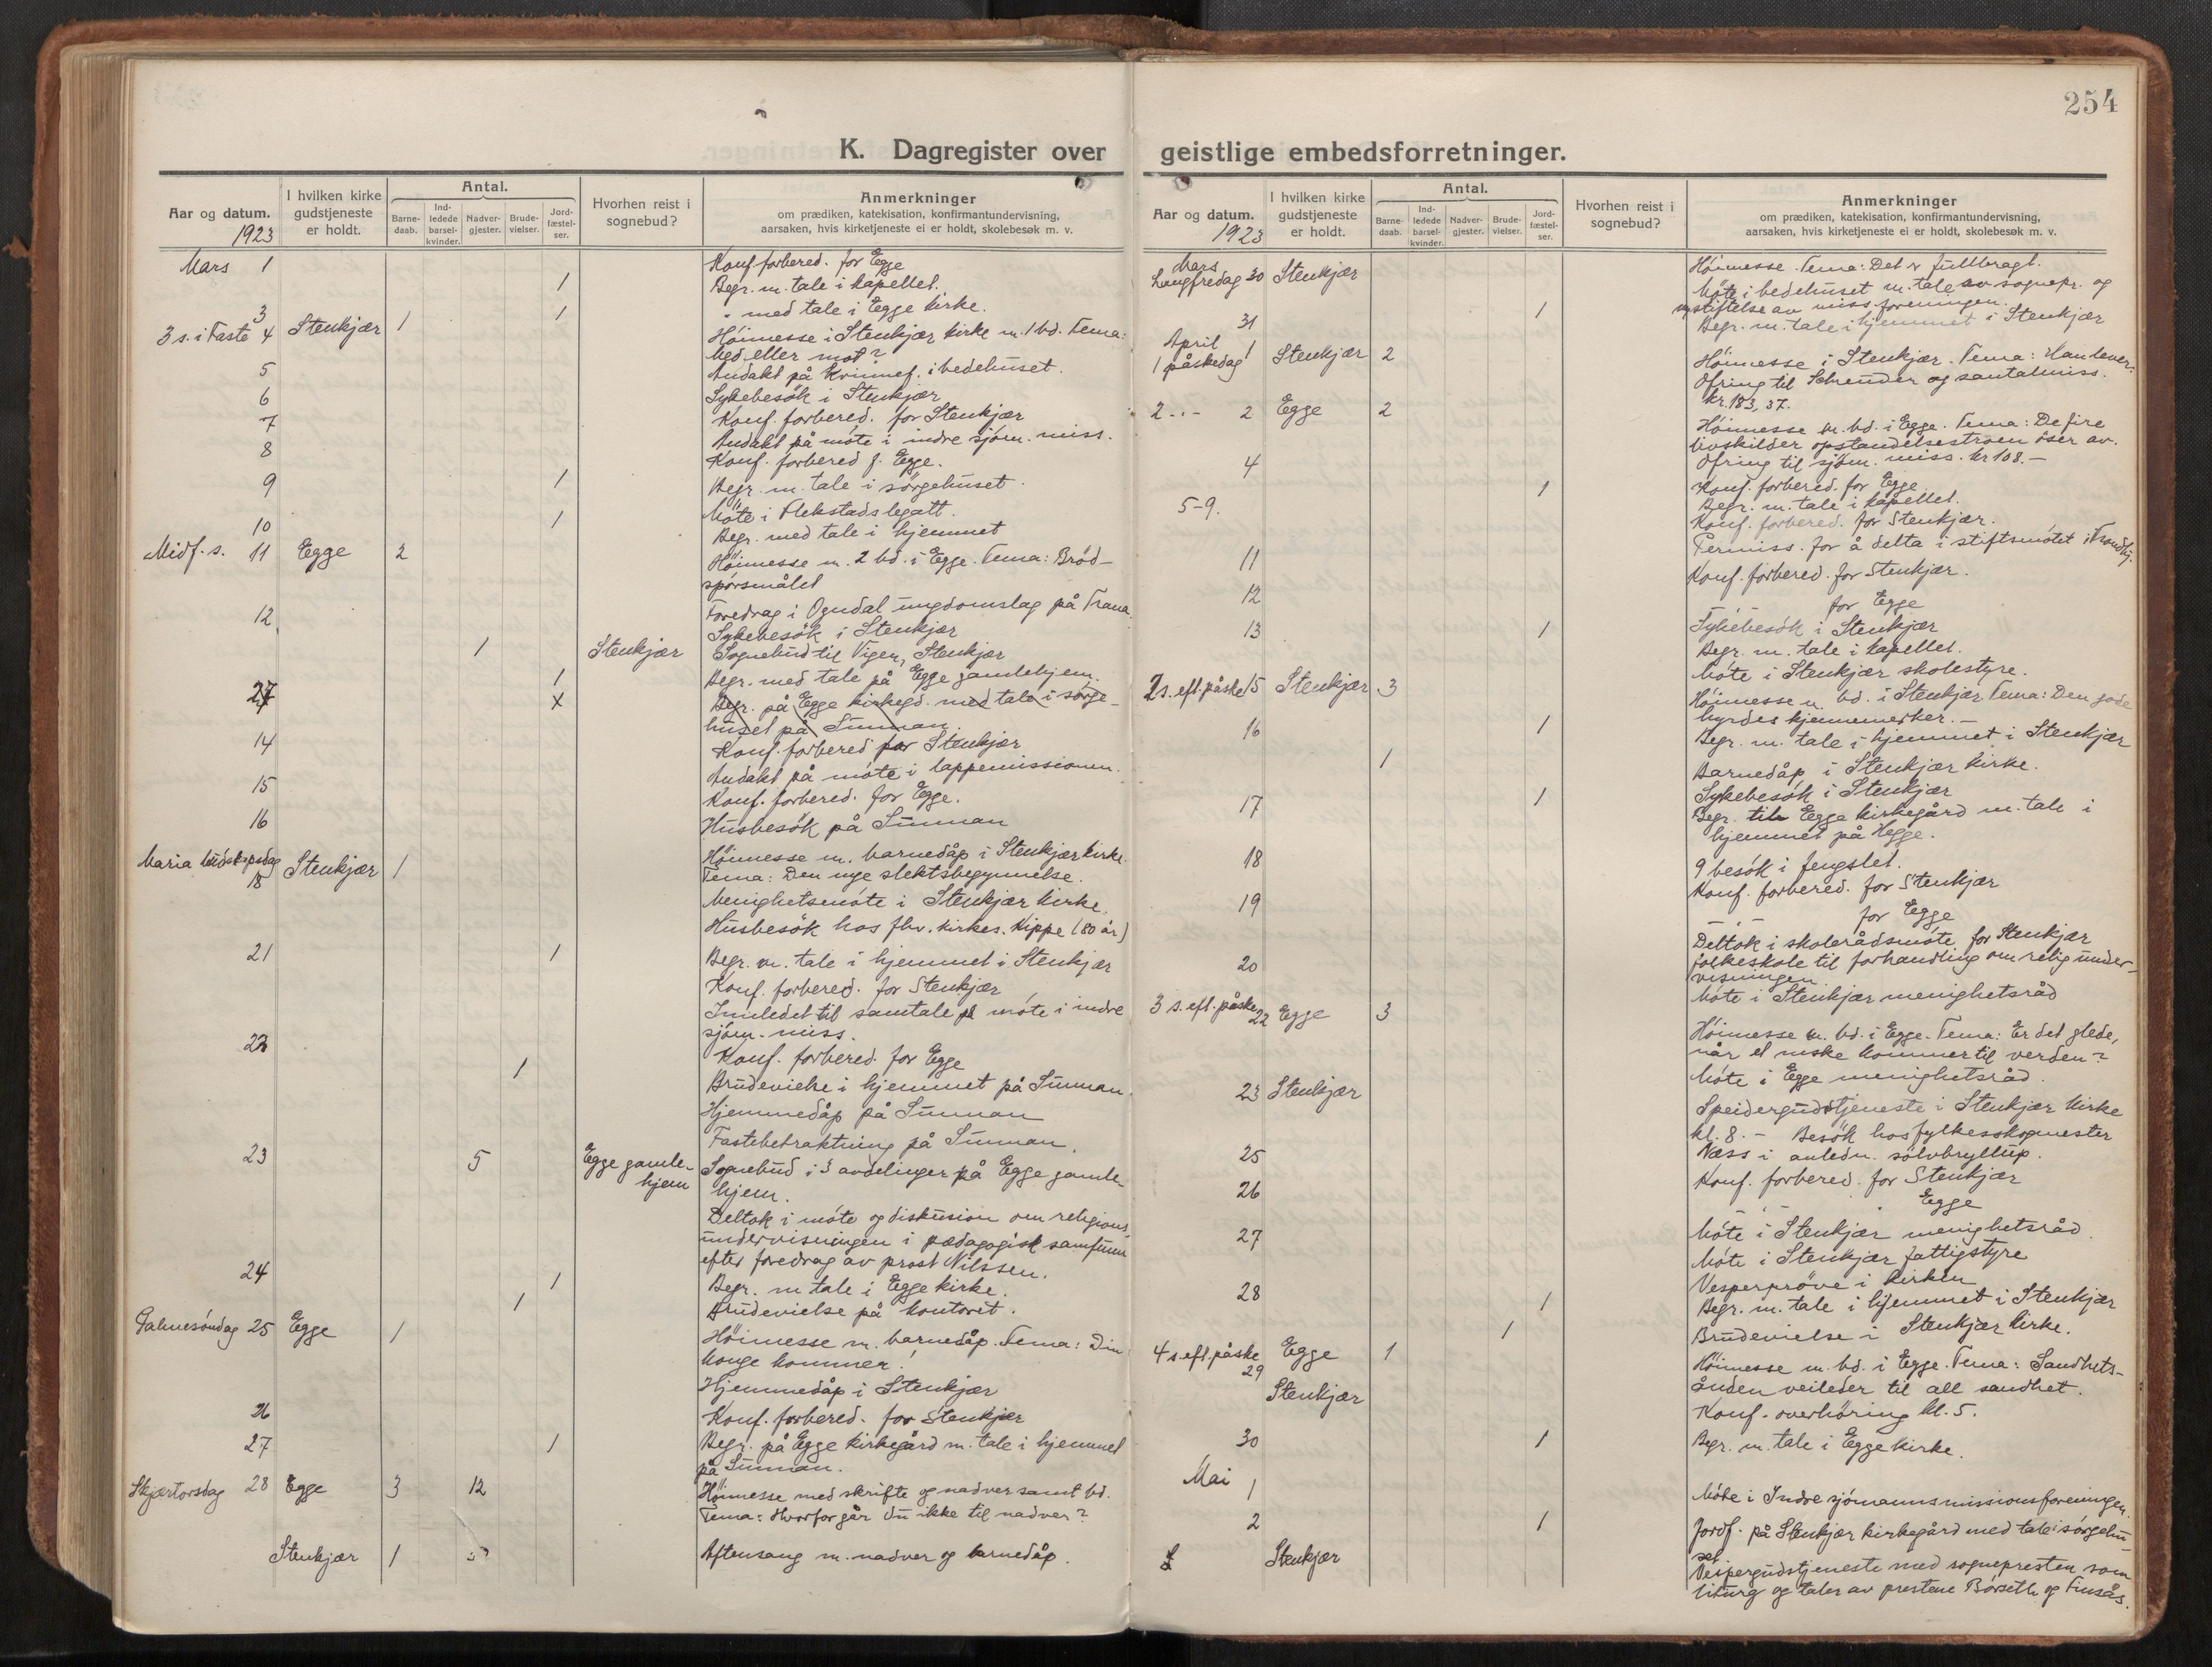 254
K. Dagregister over geistlige embedsforretninger.
Aar og datum.
1923
I hvilken kirke gudstjeneste er holdt.
Antal.
Barne-daab.
Ind-ledede barsel-kvinder.
Nadver-gjester.
Brude-vielser.
Jord-fæstel-ser.
Hvorhen reist i sognebud?
Anmerkninger
om prædiken, katekisation, konfirmantundervisning,
aarsaken, hvis kirketjeneste ei er holdt, skolebesøk m. v.
Mars 1 Konf. forbered. for Egge
1 Begr. m. tale i kapellet.
3 1 " med tale i Egge kirke.
3 s. i Faste 4 Stenkjær 1 Höimesse i Stenkjær kirke m. 1 bd. Tema:
Med eller mot?
5 Andakt på Kvinnef. i bedehuset.
6 Sykebesök i Stenkjær
7 Konf. forbered. for Stenkjær
Andakt på möte i indre sjöm. miss.
8 Konf. forbered f. Egge.
9 1 Begr. m. tale i sörgehuset.
Möte i Flekstads legatt.
10 1 Begr. med tale i hjemmet
Midf. s. 11 Egge 2 Höimesse m. 2 bd. i Egge. Tema: Bröd-
spörsmålet
12 Foredrag i Ogndal ungdomslag på Trana
Sykebesök i Stenkjær
1 Stenkjær Sognebud til Vigen, Stenkjær
1 Begr. med tale på Egge gamlehjem.
27 x Begr. på Egge kirkegd. med tale i sörge-
huset på Sunnan.
14 Konf. forbered for Stenkjær
Andakt på möte i lappemissionen.
15 Konf. forbered. for Egge.
16 Husbesök på Sunnan
Maria budskapsdag 18 Stenkjær 1 Höimesse m. barnedåp i Stenkjær kirke.
Tema: Den nye slektsbegynnelse.
Menighetsmöte i Stenkjær kirke.
Husbesök hos fhv. kirkes. Kippe (80 år)
21 1 Begr. m. tale i hjemmet i Stenkjær
Konf. forbered. for Stenkjær
Innledet til samtale på möte i indre
sjöm. miss.
22 Konf. forbered. for Egge
1 Brudevielse i hjemmet på Sunnan.
Hjemmedåp på Sunnan
Fastebetraktning på Sunnan.
23 5 Egge gamle-hjem Sognebud i 3 avdelinger på Egge gamle-
hjem.
Deltok i möte og diskusion om religions-
undervisningen i pædagogisk samfunn
efter foredrag av prost Nilssen.
24 1 Begr. m tale i Egge kirke.
1 Brudevielse på kontoret.
Palmesöndag 25 Egge 1 Höimesse m. barnedåp. Tema: Din
konge kommer!
Hjemmedåp i Stenkjær
26 Konf. forbered. for Stenkjær
27 1 Begr. på Egge kirkegård m. tale i hjemmet
på Sunnan.
Skjærtorsdag 28 Egge 3 12 Höimesse med skrifte og nadver samt bd.
Tema: Hvorfor går du ikke til nadver?
Stenkjær 1 Aftensang m. nadver og barnedåp.
Aar og datum.
1923
I hvilken kirke gudstjeneste er holdt.
Antal.
Barne-daab.
Ind-ledede barsel-kvinder.
Nadver-gjester.
Brude-vielser.
Jord-fæstel-ser.
Hvorhen reist i sognebud?
Anmerkninger
om prædiken, katekisation, konfirmantundervisning,
aarsaken, hvis kirketjeneste ei er holdt, skolebesøk m. v.
Mars
Langfredag 30 Stenkjær Höimesse. Tema: Det er fullbragt.
Möte i bedehuset m. tale av sognepr. og
nystiftelse av miss. foreningen.
31 1 Begr. m. tale i hjemmet i Stenkjær
April
1 påskedag 1 Stenkjær 2 Höimesse i Stenkjær. Tema: Han lever.
Ofring til Schreuder og santalmiss.
kr. 183,37.
2 - " - 2 Egge 2 Höimesse m. bd. i Egge. Tema: De fire
livskilder opstandelsestroen öser av.
Ofring til sjöm. miss. kr 108.-
4 Konf. forbered. for Egge
1 Begr. m. tale i kapellet.
Konf. forbered. for Stenkjær.
5-9. Permiss. for å delta i stiftsmötet i Trondhj.
11 Konf. forbered. for Stenkjær.
12 - " - for Egge
13 Sykebesök i Stenkjær
1 Begr. m. tale i kapellet.
Möte i Stenkjær skolestyre.
2 s. eft. påske 15 Stenkjær 3 Höimesse m. bd. i Stenkjær. Tema: Den gode
hyrdes kjennemerker.-
16 1 Begr. m. tale i hjemmet i Stenkjær
1 Barnedåp i Stenkjær kirke.
Sykebesök i Stenkjær
17 1 Begr. til Egge kirkegård m. tale i
hjemmet på Hegge.
18 9 besök i fengslet.
Konf. forbered. for Stenkjær
19 - " - for Egge
Deltok i skolerådsmöte for Stenkjær
folkeskole til forhandling om relig. under-
visningen
20 Möte i Stenkjær menighetsråd
3 s. eft. påske 22 Egge 3 Höimesse m. bd. i Egge. Tema: Er det glede,
når et mske kommer til verden?
Möte i Egge menighetsråd.
23 Stenkjær Speidergudstjeneste i Stenkjær kirke
kl. 8. - Besök hos fylkesskogmester
Næss i anledn. sölvbryllup.
25 Konf. forbered. for Stenkjær
26 - " - Egge
Möte i Stenkjær menighetsråd.
27 Möte i Stenkjær fattigstyre
Vesperpröve i kirken
28 1 Begr. m. tale i hjemmet i Stenkjær
1 Brudevielse i Stenkjær kirke.
4 s. eft. påske 29 Egge 1 Höimesse m. bd. i Egge. Tema: Sandhets-
ånden veileder til all sandhet.
Stenkjær Konf. overhöring kl. 5.
30 1 Begr. m. tale i Egge kirke.
Mai 1 Möte i Indre sjömannsmissionsforeningen.
2 1 Jordf. på Stenkjær kirkegård med tale i sörgehu-
set
Stenkjær Vespergudstjeneste med sognepresten som
liturg og taler av prestene Börseth og Finsås.